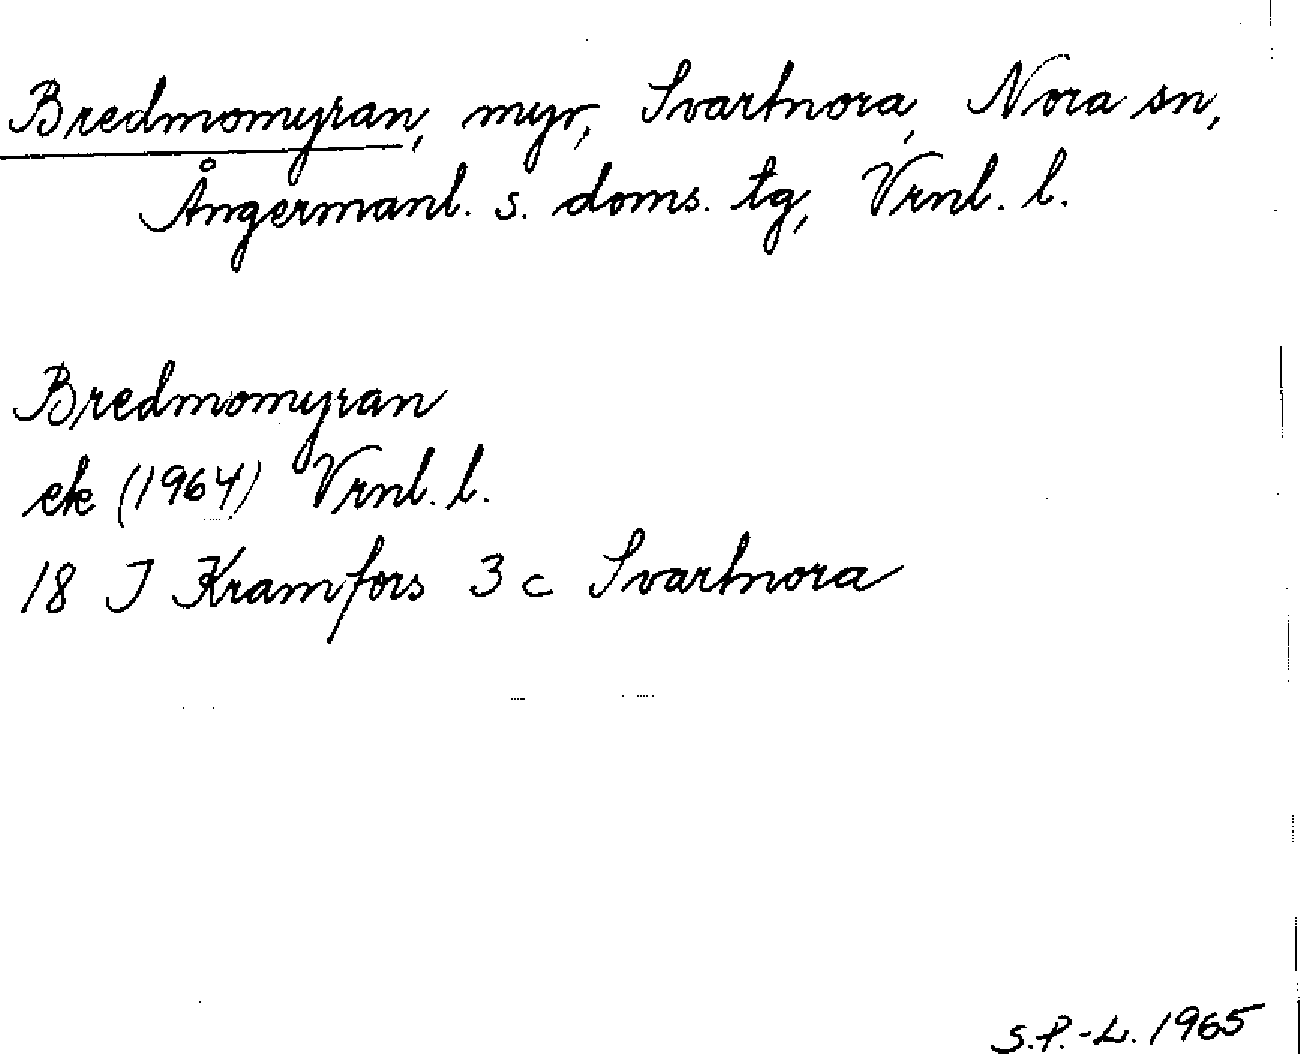 Bredmomyran, myr, Svartnora, Nora sn,
Ångermanl. s. doms. tg, Vrnl. l.
Bredmomyran
ek (1964) Vrnl. l.
18 J Kramfors 3 c Svartnora
S.P.-L. 1965